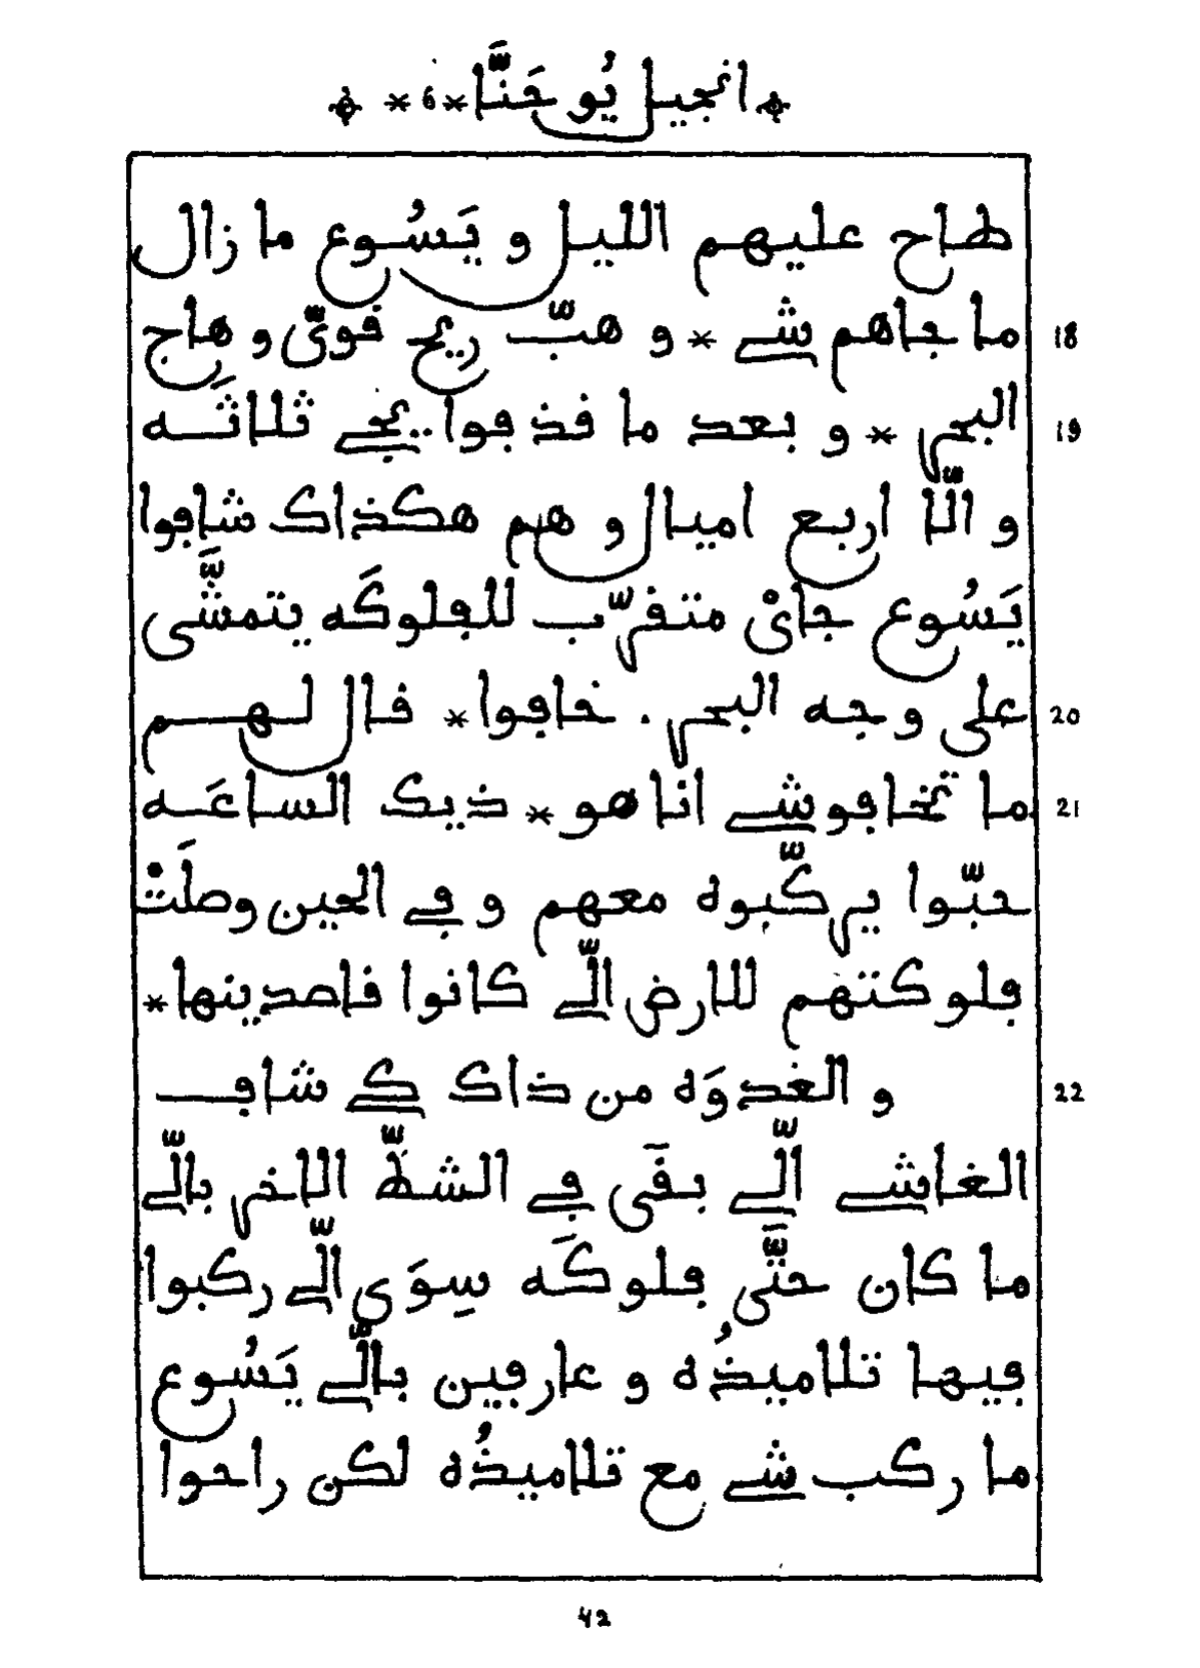 انجيل يُوحَنَّا * 6 *
طاح عليهم الليل و يَسُوع ما زال
18 ما جاهم شي * و هبّ ريح قويّ و هاج
19 البحر * و بعد ما قذفوا يجي ثلاثَه
و الّا اربع اميال و هم هكذاك شافوا
يَسُوع جايْ متقرّب للفلوكَه يتمشَّى
20 على وجه البحر . خافوا * قال لهم
21 ما تخافوشي انا هو * ذيك الساعَه
حبّوا يركّبوه معهم و في الحين وصلَتْ
فلوكتهم للارض الّي كانوا قاصدينها *
22 و الغدوَه من ذاك كي شاف
الغاشي الّي بقَى في الشطّ الاخر بالّي
ما كان حتَّى فلوكَه سِوَى الّي ركبوا
فيها تلاميذُه و عارفين بالّي يَسُوع
ما ركب شي مع تلاميذُه لكن راحوا
42